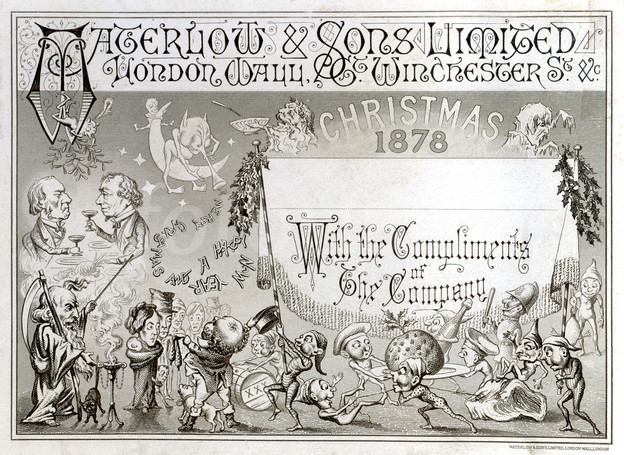 WATERLOW & SONS LIMITED
LONDON WALL, GT. WINCHESTER ST. &c
CHRISTMAS
1878
MERRY CHRISTMAS AND A HAPPY NEW YEAR
With the Compliments
of
The Company
XXX
WATERLOW & SONS LIMITED, LONDON WALL, LONDON